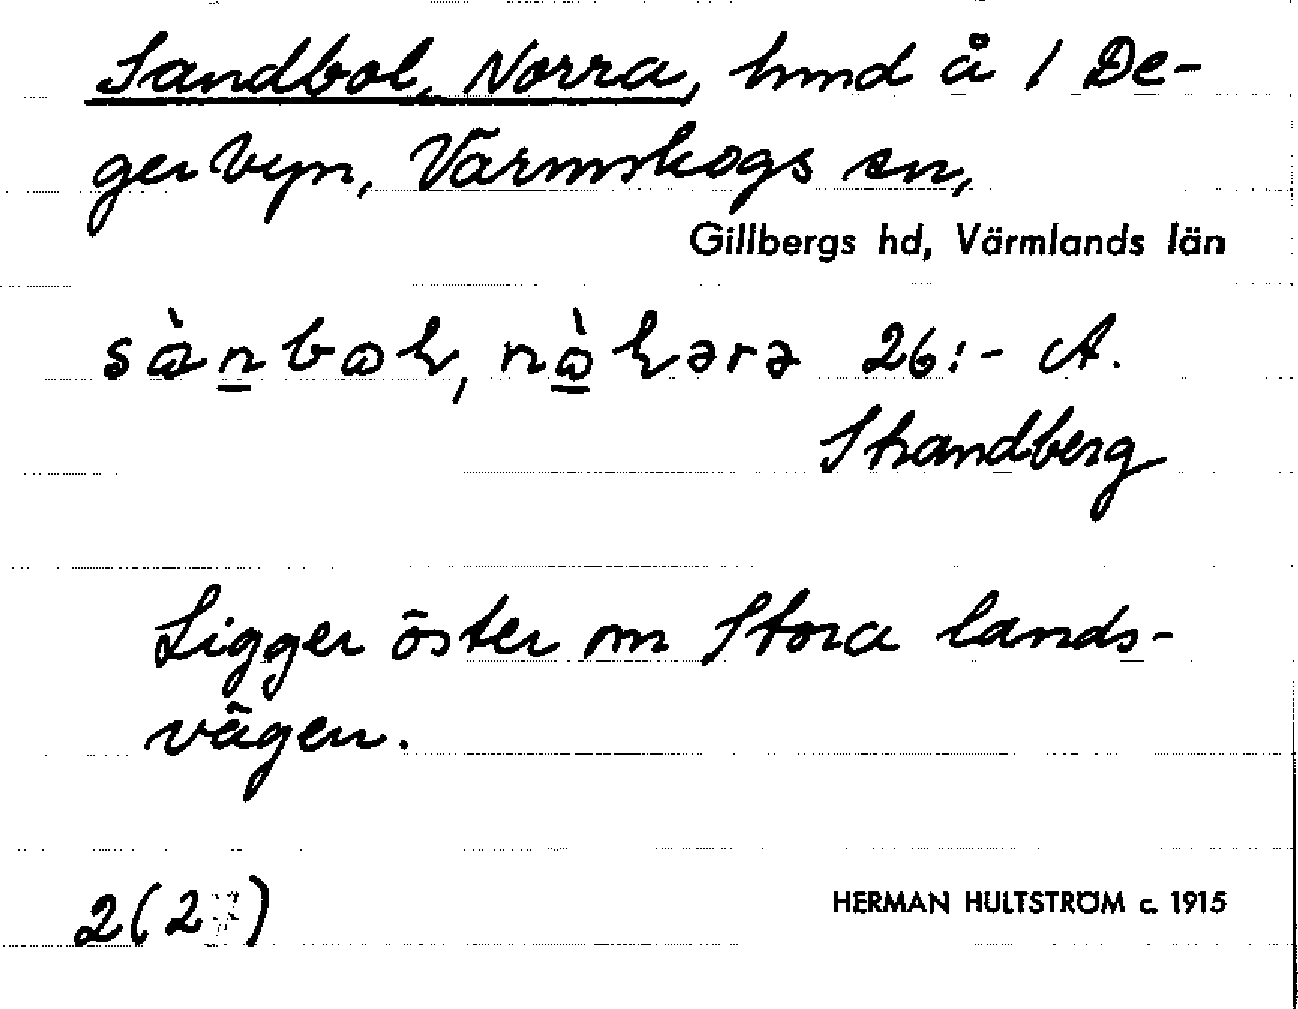 Sandbol, Norra, hmd å 1 De-
gerbyn, Värmskogs sn,
Gillbergs hd, Värmlands län
26:- A.
Strandberg
Ligger öster om Stora lands-
vägen.
2(2)
HERMAN HULTSTRÖM c. 1915